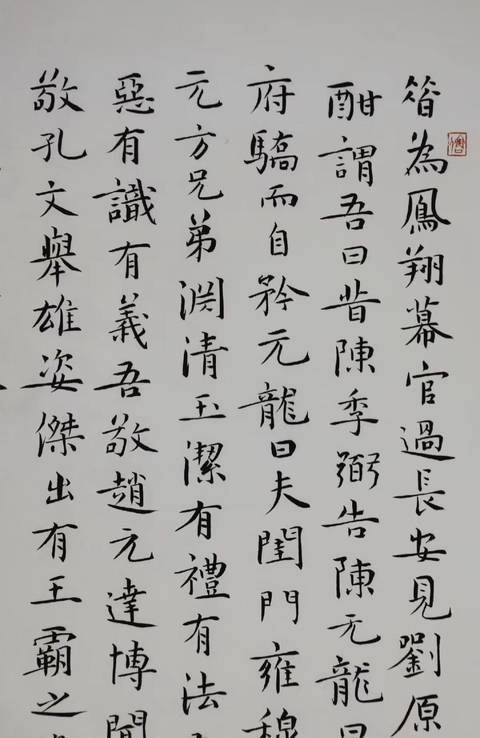 昔為鳳翔幕官過長安見劉原
酣謂吾曰昔陳季弼告陳元龍曰
府驕而自矜元龍曰夫閨門雍穆
元方兄弟淵清玉潔有禮有法
惡有識有義吾敬趙元達博聞
敬孔文舉雄姿傑出有王霸之